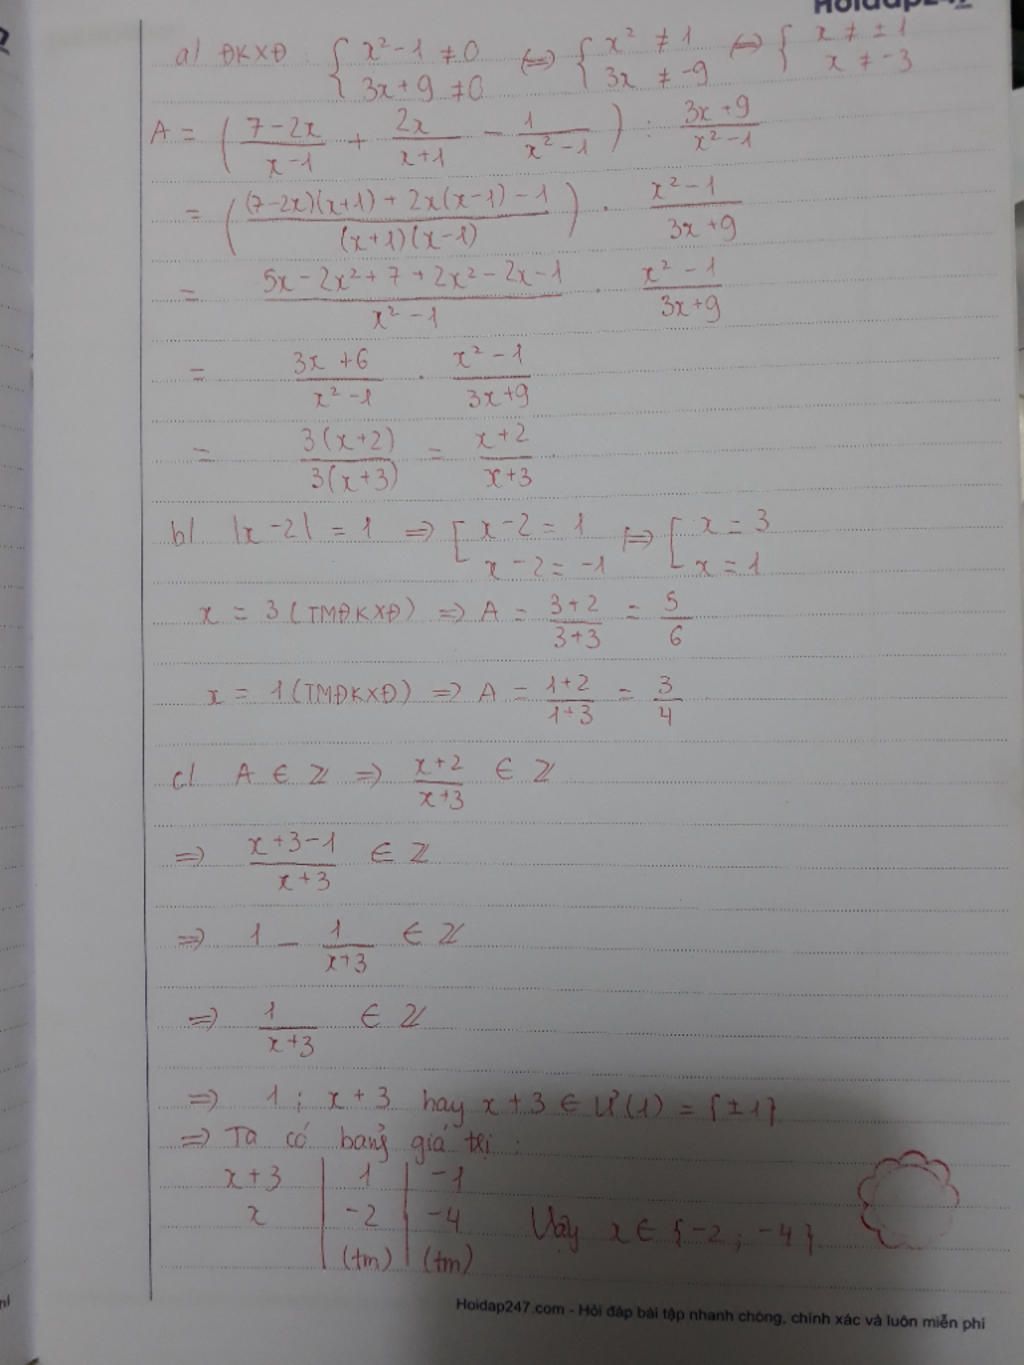 Hoidap247
a) ĐKXĐ : { x² - 1 ≠ 0 ⇔ { x² ≠ 1 ⇔ { x ≠ ± 1
3x + 9 ≠ 0 3x ≠ -9 x ≠ -3
A = ( (7 - 2x)/(x - 1) + 2x/(x + 1) - 1/(x² - 1) ) : (3x + 9)/(x² - 1)
= ( ((7 - 2x)(x + 1) + 2x(x - 1) - 1)/((x + 1)(x - 1)) ) . (x² - 1)/(3x + 9)
= (5x - 2x² + 7 + 2x² - 2x - 1)/(x² - 1) . (x² - 1)/(3x + 9)
= (3x + 6)/(x² - 1) . (x² - 1)/(3x + 9)
= 3(x + 2)/3(x + 3) = (x + 2)/(x + 3)
b) |x - 2| = 1 ⇒ [ x - 2 = 1 ⇔ [ x = 3
x - 2 = -1 x = 1
x = 3 (TMĐKXĐ) ⇒ A = (3 + 2)/(3 + 3) = 5/6
x = 1 (TMĐKXĐ) ⇒ A = (1 + 2)/(1 + 3) = 3/4
c) A ∈ Z ⇒ (x + 2)/(x + 3) ∈ Z
⇒ (x + 3 - 1)/(x + 3) ∈ Z
⇒ 1 - 1/(x + 3) ∈ Z
⇒ 1/(x + 3) ∈ Z
⇒ 1 ⋮ x + 3 hay x + 3 ∈ Ư(1) = {±1}
⇒ Ta có bảng giá trị :
x + 3 | 1 | -1
x | -2 | -4 Vậy x ∈ {-2 ; -4}
(tm) | (tm)
Hoidap247.com - Hỏi đáp bài tập nhanh chóng, chính xác và luôn miễn phí